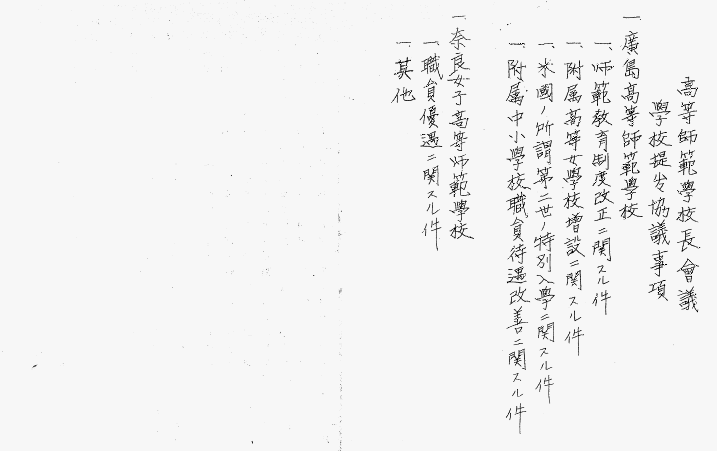 高等師範學校長會議
學校提出協議事項
一、廣島高等師範學校
一、師範教育制度改正ニ関スル件
一、附属高等女學校增設ニ関スル件
一、米國ノ所謂第二世ノ特別入學ニ関スル件
一、附属中小學校職員待遇改善ニ関スル件
一、奈良女子高等師範學校
一、職員優遇ニ関スル件
一、其他